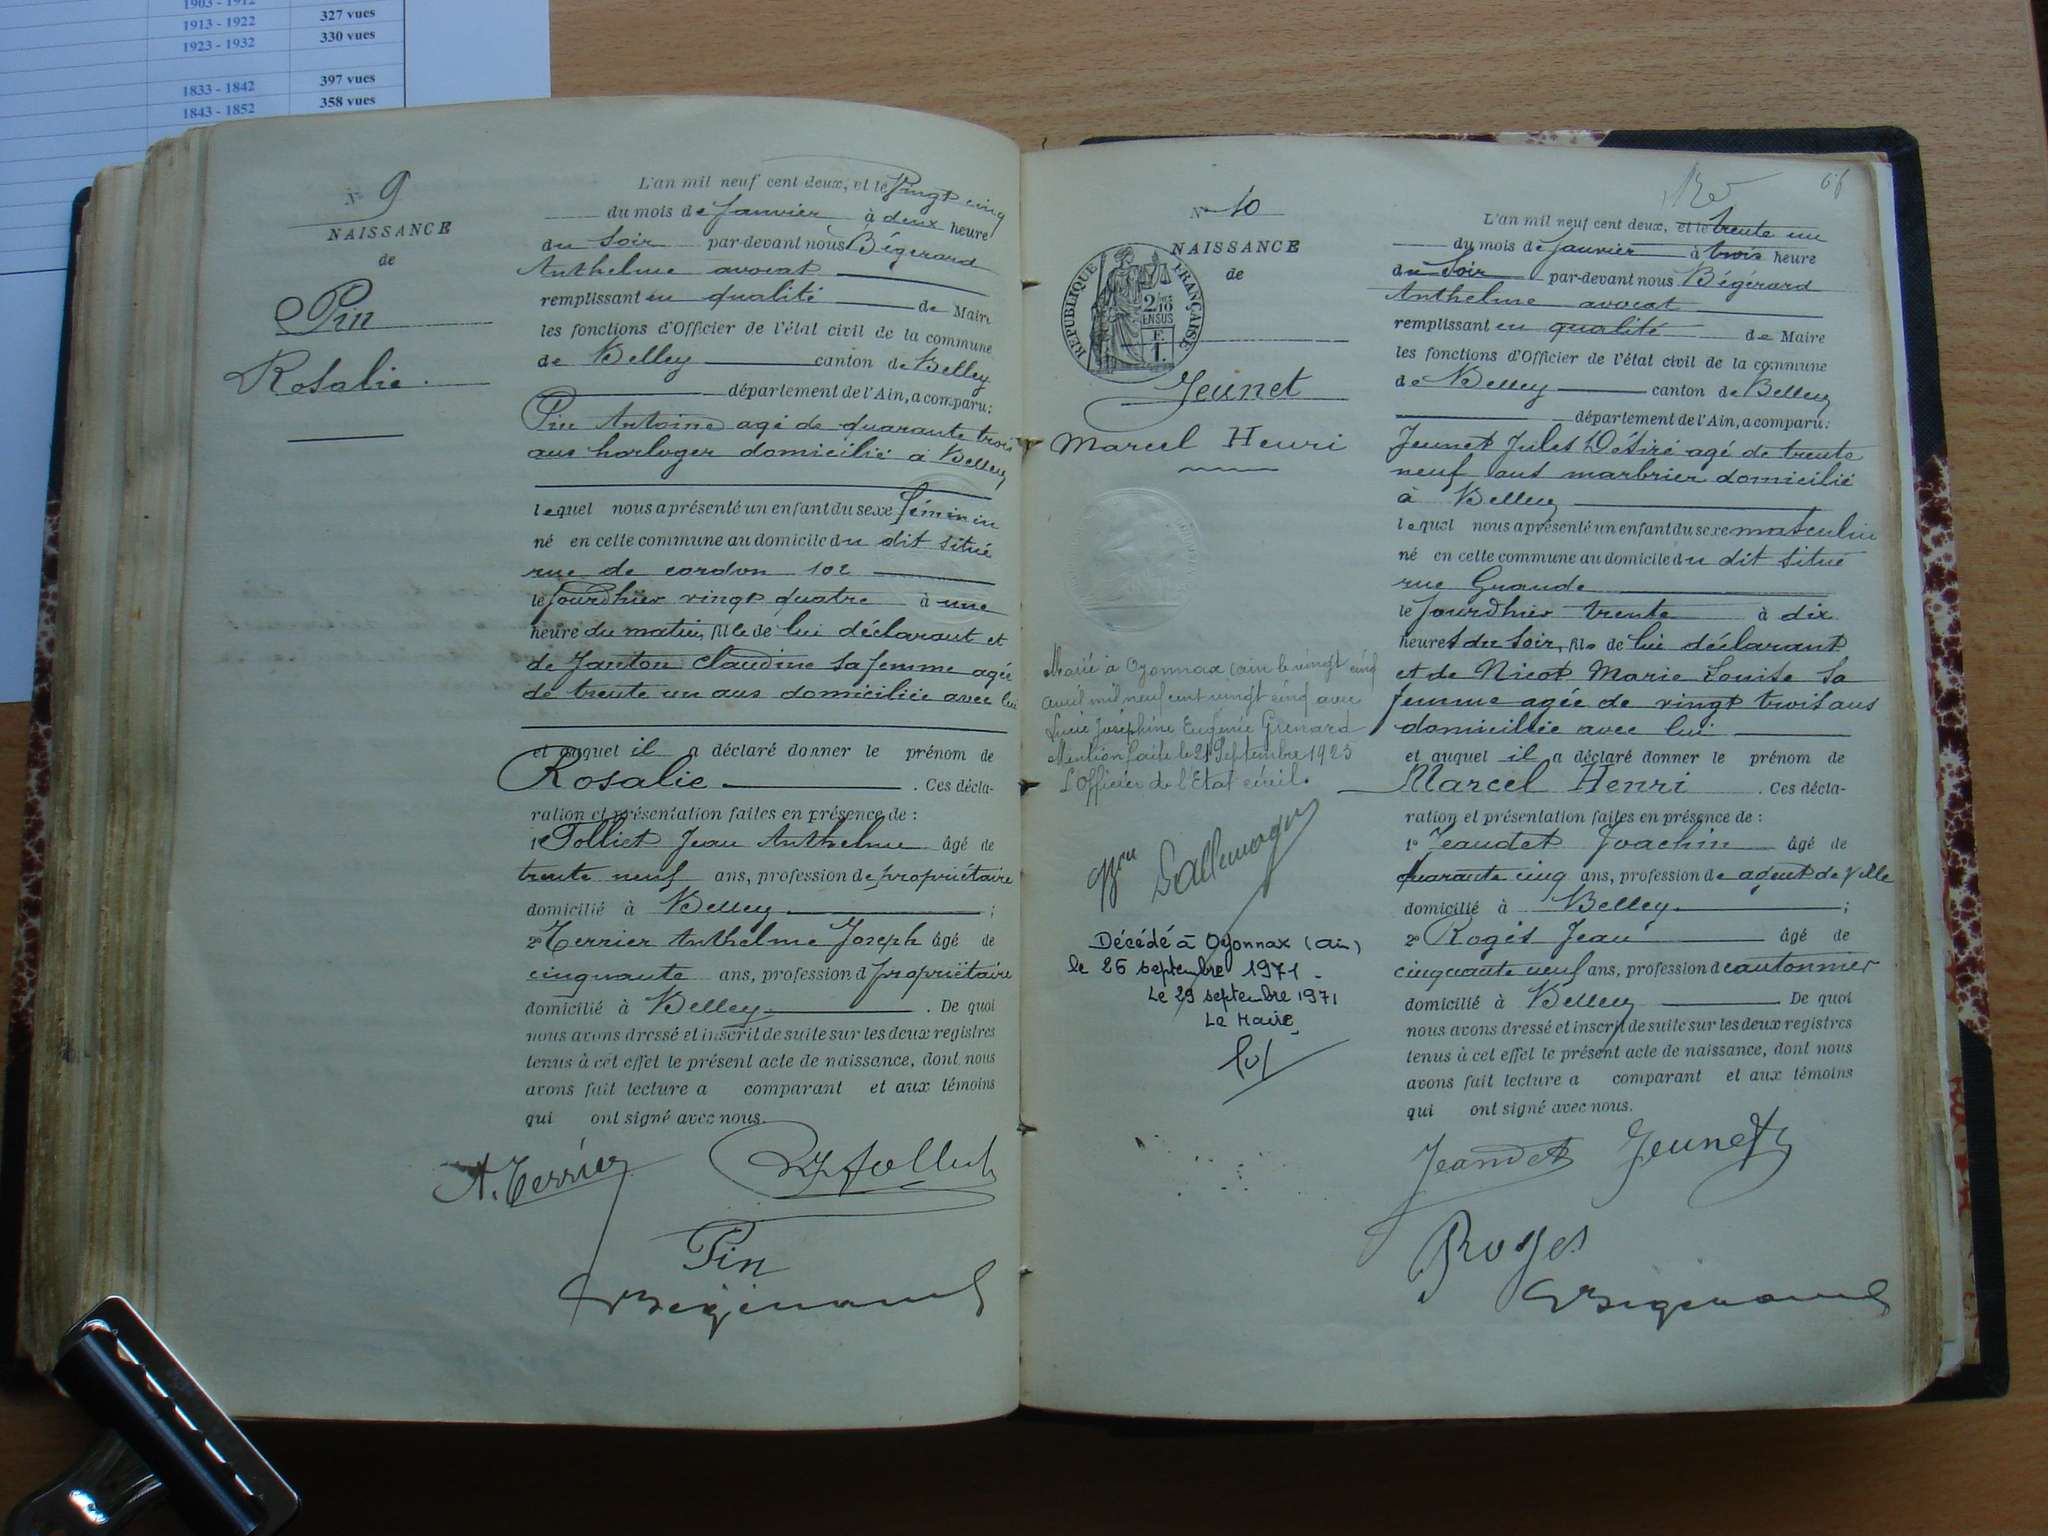 1903 - 1912
1913 - 1922 327 vues
1923 - 1932 330 vues
1833 - 1842 397 vues
1843 - 1852 358 vues
N° 9
NAISSANCE
de
Pin
Rosalie.
L'an mil neuf cent deux, et le Vingt cinq
du mois de Janvier à deux heure
du Soir par-devant nous Bégérard
Anthelme avocat
remplissant en qualité de Maire
les fonctions d'Officier de l'état civil de la commune
de Belley canton de Belley
département de l'Ain, a comparu:
Pin Antoine agé de quarante trois
ans horloger domicilié à Belley
lequel nous a présenté un enfant du sexe féminin
né en cette commune au domicile du dit situé
rue de cordon 102
le Jourdhier vingt quatre à une
heure du matin, fille de lui déclarant et
de Janton Claudine sa femme agée
de trente un ans domiciliée avec lui
et auquel il a déclaré donner le prénom de
Rosalie . Ces décla-
ration et présentation faites en présence de :
1° Tolliet Jean Anthelme âgé de
trente neuf ans, profession de propriétaire
domicilié à Belley ;
2° Terrier Anthelme Joseph âgé de
cinquante ans, profession d propriétaire
domicilié à Belley . De quoi
nous avons dressé et inscrit de suite sur les deux registres
tenus à cet effet le présent acte de naissance, dont nous
avons fait lecture a comparant et aux témoins
qui ont signé avec nous.
A. Terrier
Pin
N° 10
NAISSANCE
de
RÉPUBLIQUE FRANÇAISE
2/10
EN SUS
F.
1.
Jeunet
Marcel Henri
Marié à Oyonnax (ain le vingt cinq
avril mil neuf cent vingt cinq avec
Lucie Joséphine Eugénie Grenard
Mention faite le 21 Septembre 1925
L'Officier de l'Etat civil.
Décédé à Oyonnax (Ain)
le 26 septembre 1971.
Le 29 septembre 1971
Le Maire
L'an mil neuf cent deux, et le trente un
du mois de Janvier à trois heure
du Soir par-devant nous Bégérard
Anthelme avocat
remplissant en qualité de Maire
les fonctions d'Officier de l'état civil de la commune
de Belley canton de Belley
département de l'Ain, a comparu:
Jeunet Jules Désiré agé de trente
neuf ans marbrier domicilié
à Belley
lequel nous a présenté un enfant du sexe masculin
né en cette commune au domicile du dit situé
rue Grande
le Jourdhier trente à dix
heures du soir, fils de lui déclarant
et de Nicot Marie Louise sa
femme agée de vingt trois ans
domiciliée avec lui
et auquel il a déclaré donner le prénom de
Marcel Henri . Ces décla-
ration et présentation faites en présence de :
1° Jeandet Joachin âgé de
quarante cinq ans, profession de agent de ville
domicilié à Belley. ;
2° Rogès Jean âgé de
cinquante neuf ans, profession de cantonnier
domicilié à Belley De quoi
nous avons dressé et inscrit de suite sur les deux registres
tenus à cet effet le présent acte de naissance, dont nous
avons fait lecture a comparant et aux témoins
qui ont signé avec nous.
Jeandet Jeunet
Roges